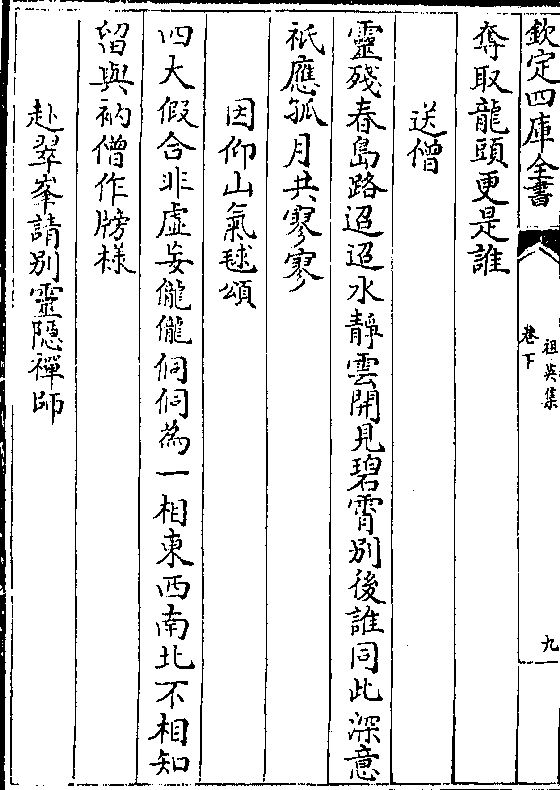 欽定四庫全書
祖英集
卷下
九
奪取龍頭更是誰
送僧
靈殘春島路迢迢水靜雲開見碧霄別後誰同此深意
祇應孤月共寥寥
因仰山氣毬頌
四大假合非虛妄儱儱侗侗為一相東西南北不相知
留與衲僧作牓様
赴翠峯請別靈隱禪師